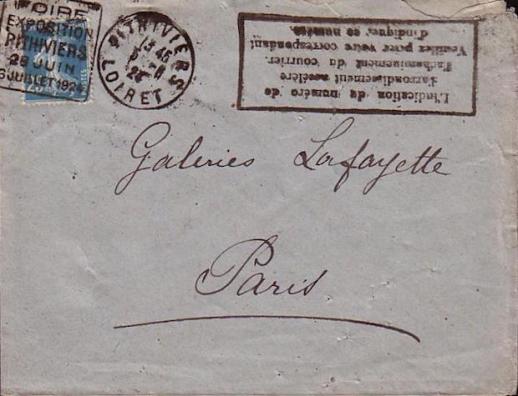 FOIRE
EXPOSITION
PITHIVIERS
28 JUIN
6 JUILLET 1924
25
PITHIVIERS
13 45
LOIRET
L'indication du numéro de
l'arrondissement accélère
l'acheminement du courrier.
Veuillez prier votre correspondant
d'indiquer ce numéro.
Galeries Lafayette
Paris